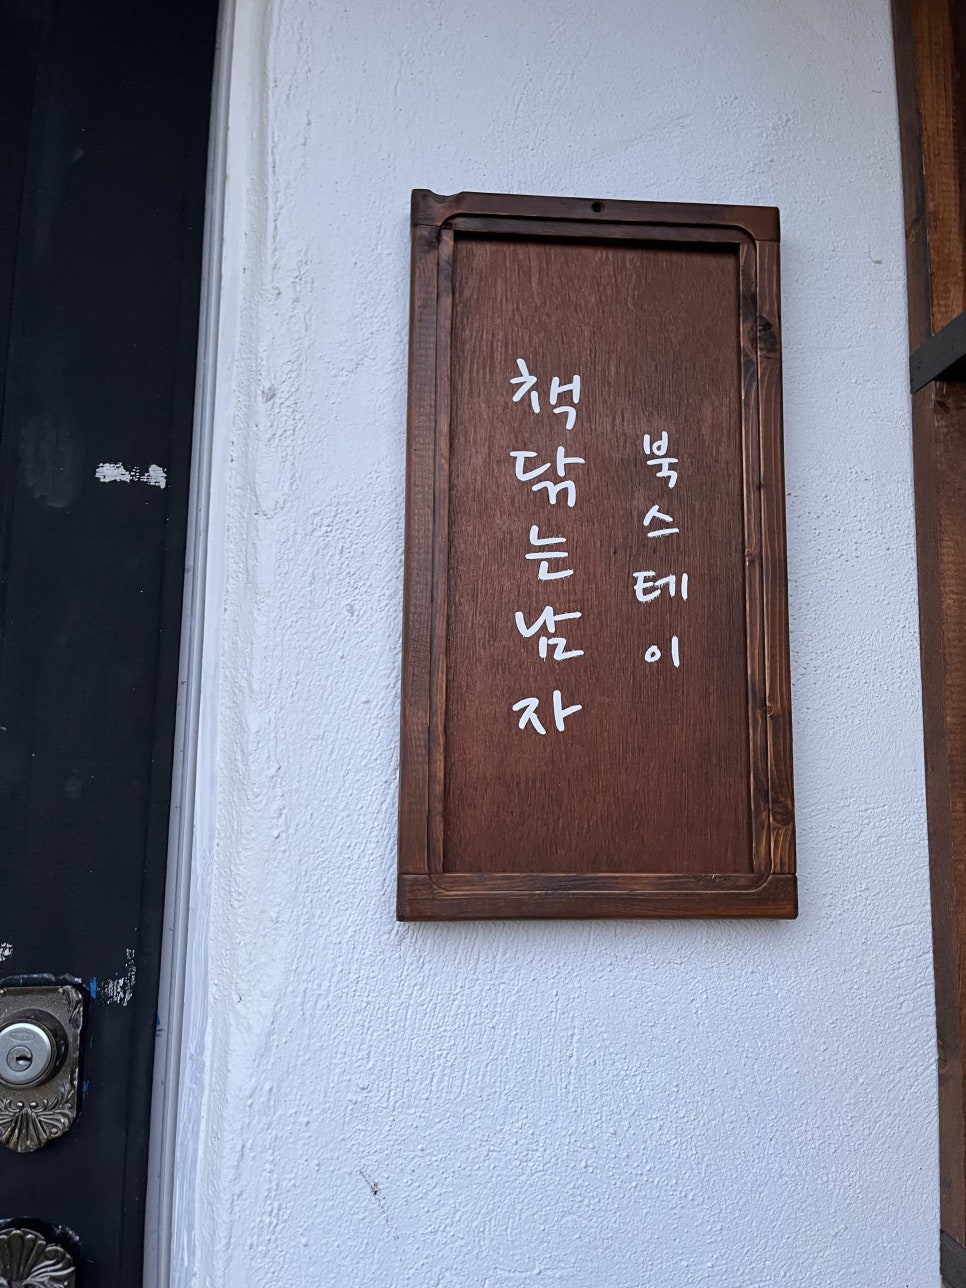 북스테이
책닦는남자